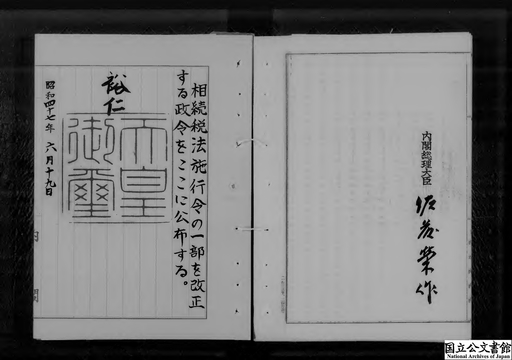 内閣総理大臣
佐藤榮作
相続税法施行令の一部を改正
する政令をここに公布する。
裕仁
天皇
御璽
昭和四十七年 六月十九日
内閣
国立公文書館
National Archives of Japan